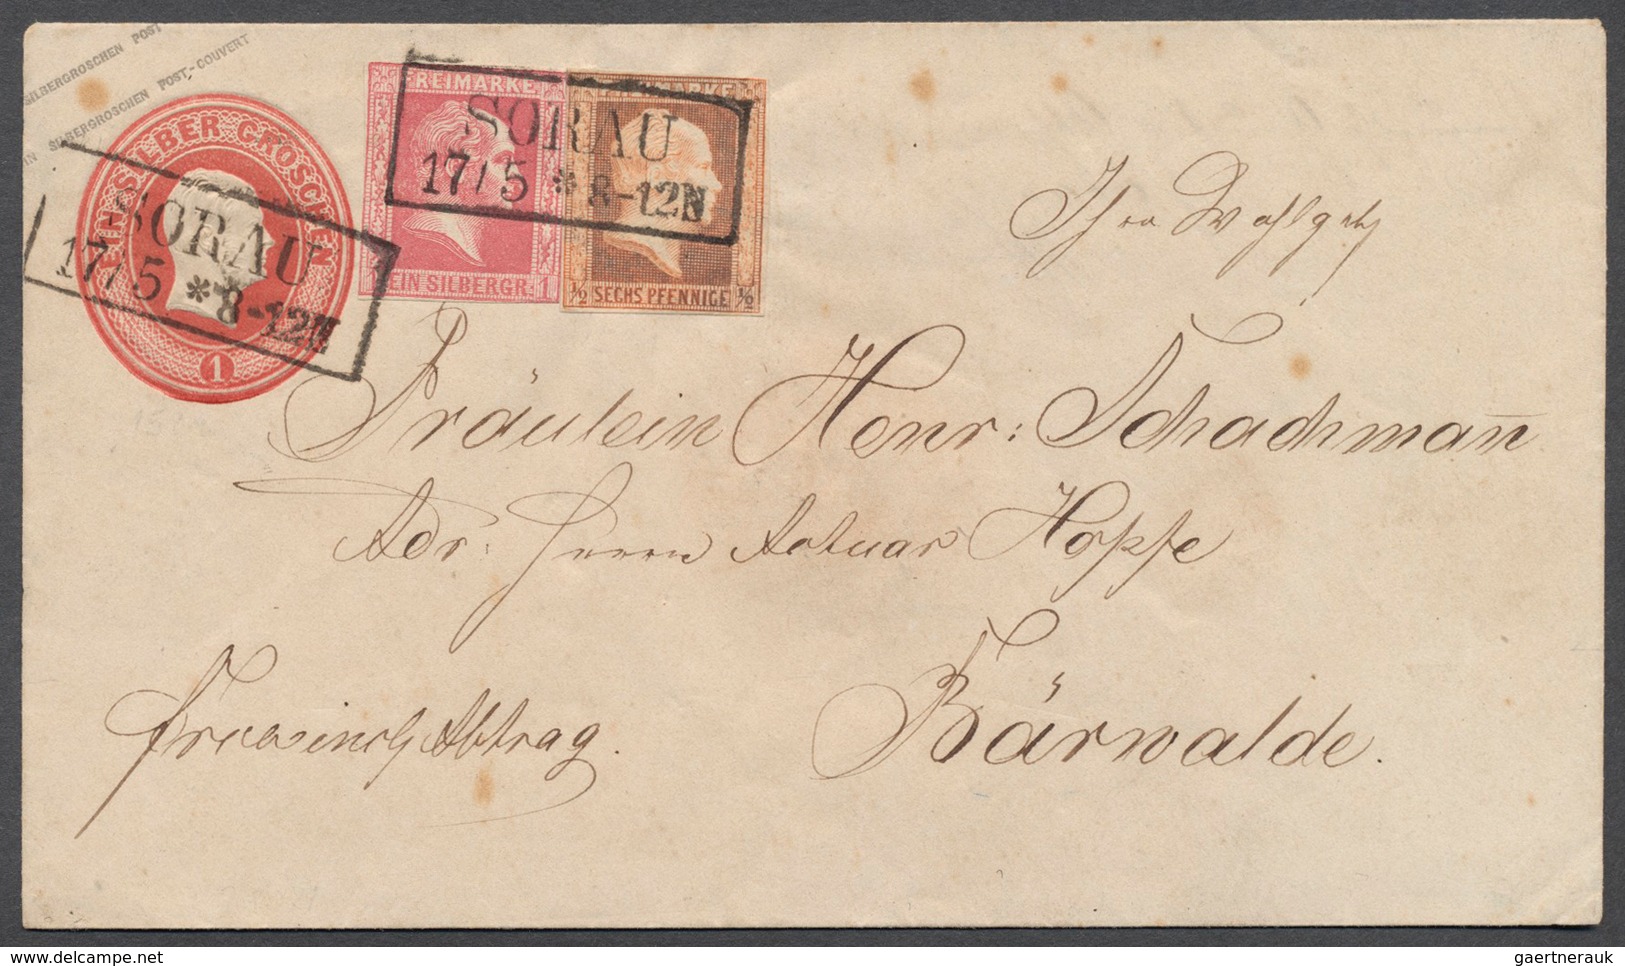 SILBERGROSCHEN POST
EIN SILBERGROSCHEN POST-COUVERT
EIN SILBER GROSCHEN
1
SORAU
17/5 * 8-12N
FREIMARKE
EIN SILBERGR. 1
FREIMARKE
½ SECHS PFENNIGE ½
SORAU
17/5 * 8-12N
Ihro Wohlgeb
Fräulein Henr: Schachman̄
Adr: Herrn Actuar Hopfe
Bärwalde.
Abtrag.
gaertnerauk